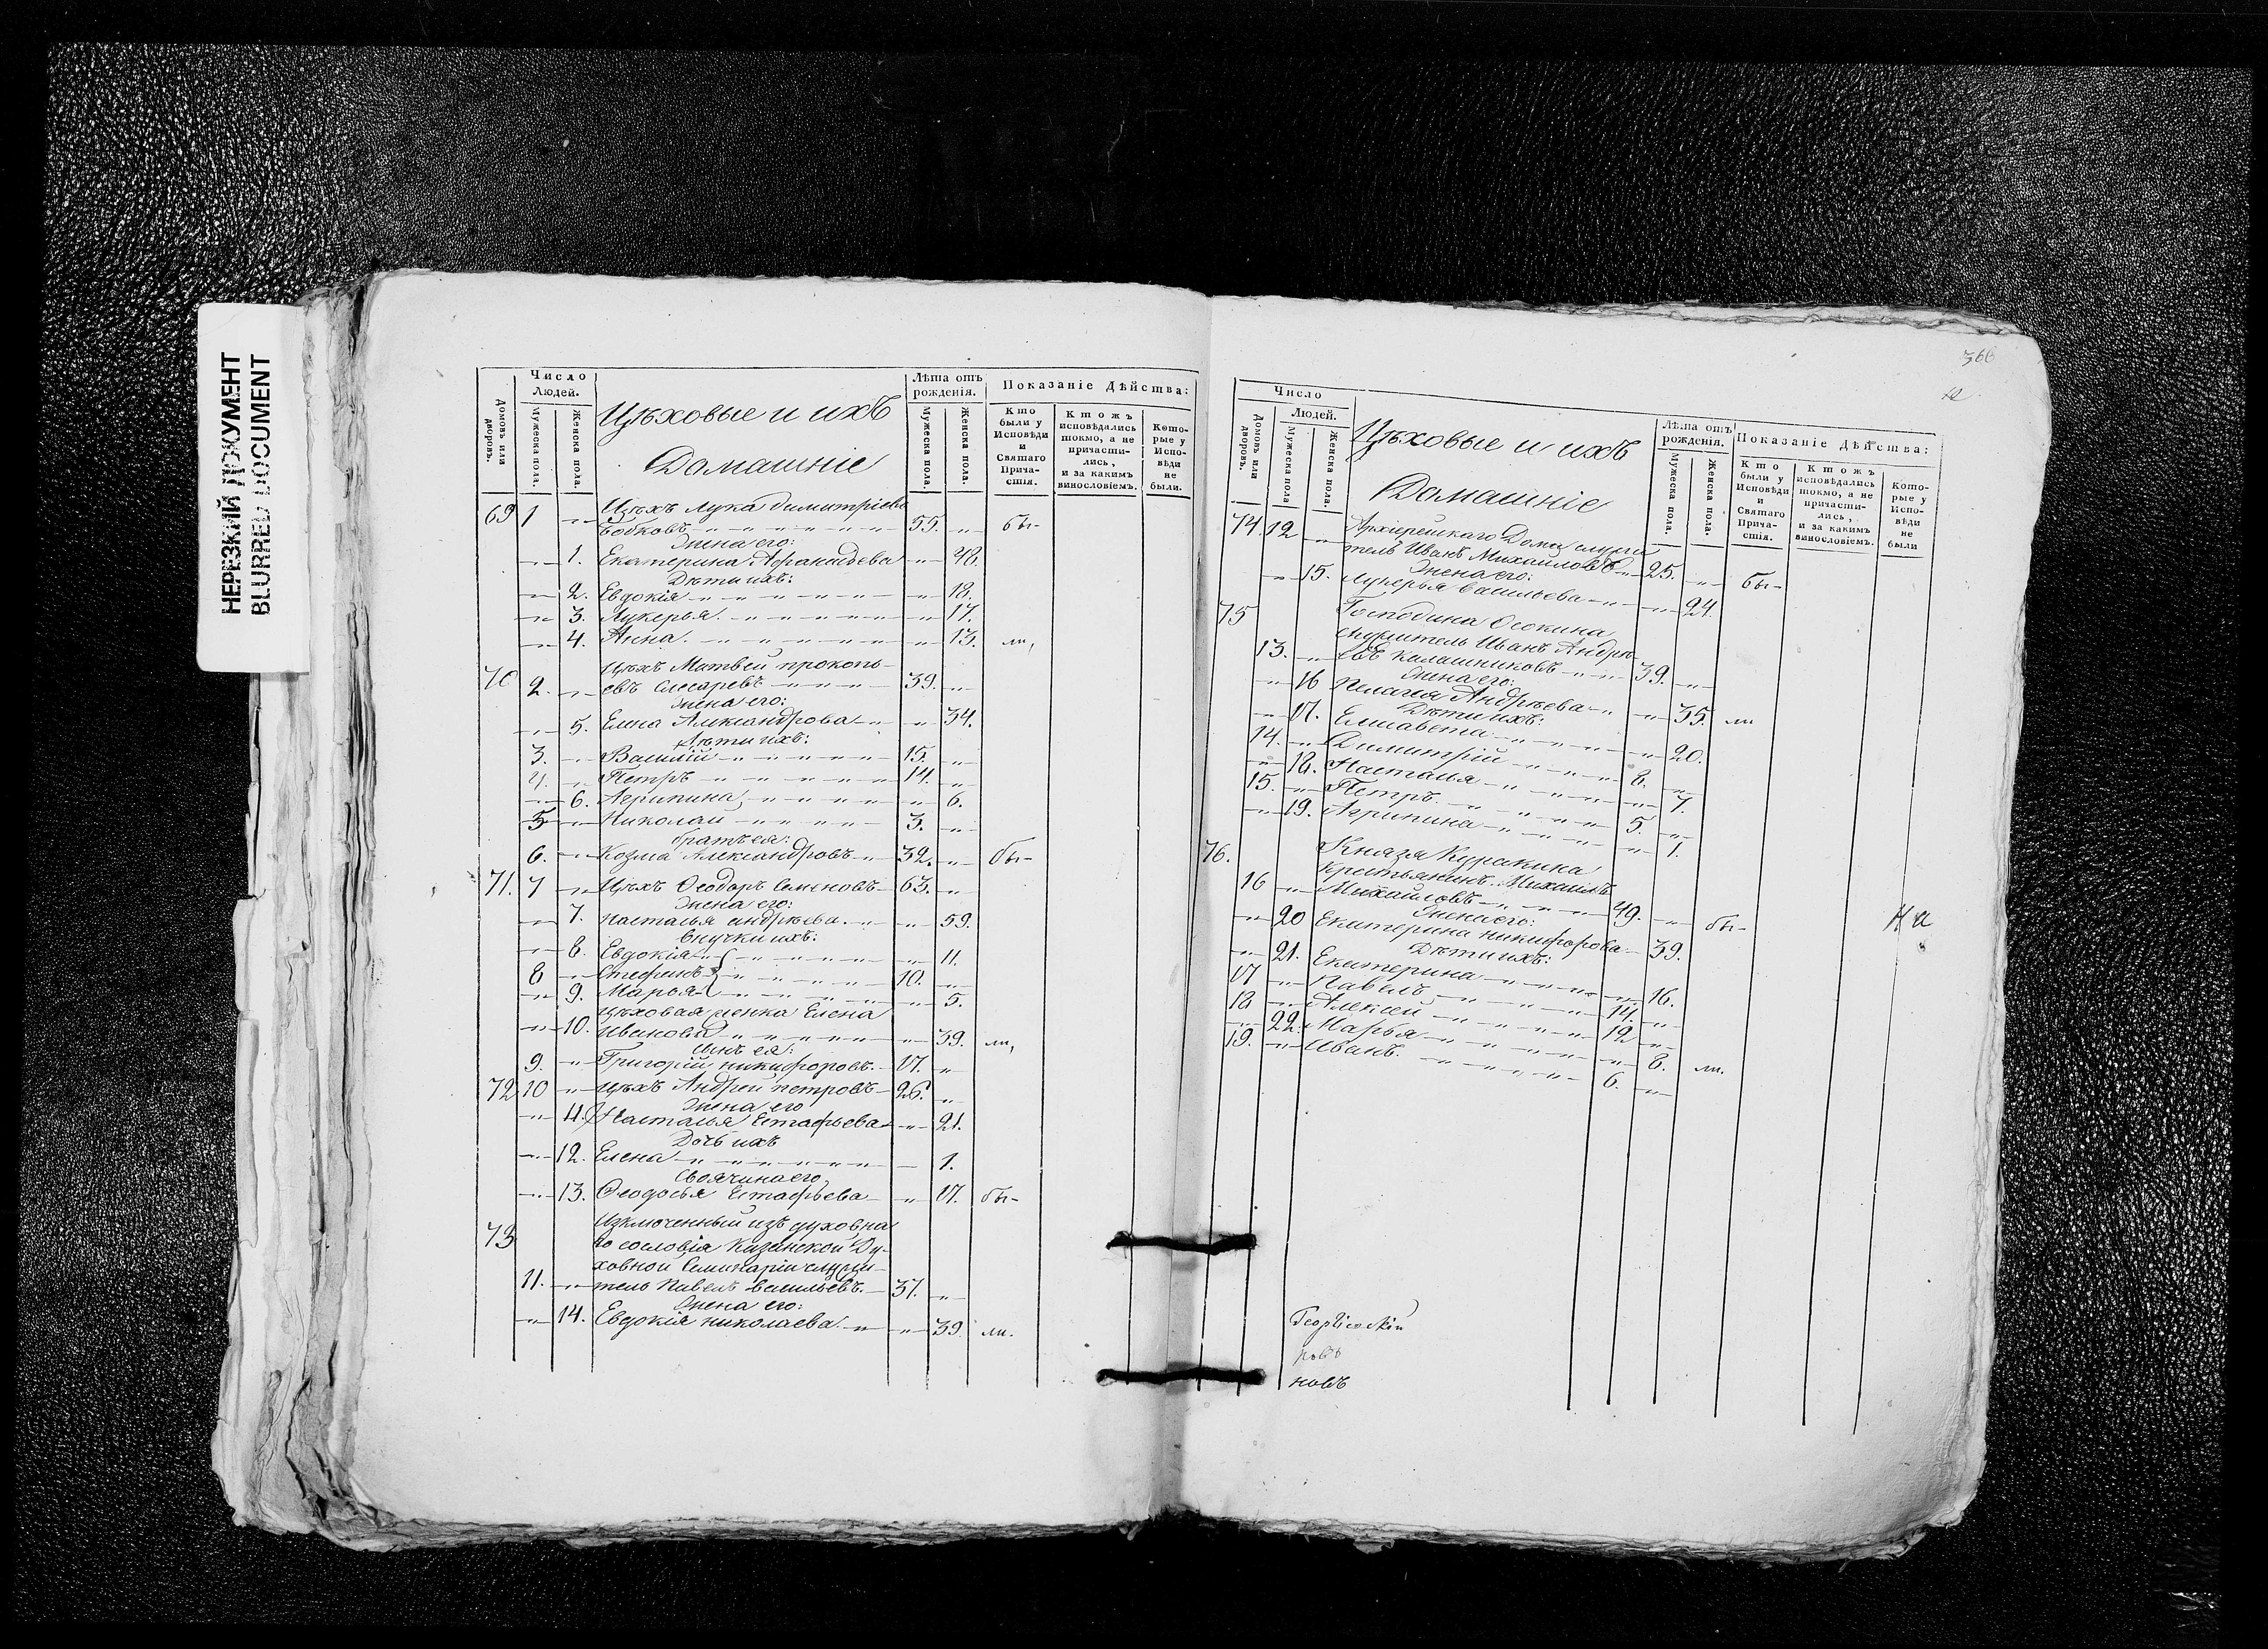 НЕРЕЗКИЙ ДОКУМЕНТ
BLURRED DOCUMENT
Число Людей.
Домовъ или дворовъ.
Мужеска пола.
Женска пола.
Цѣховые и ихъ
Домашніе
Лѣта отъ рожденія.
Мужеска пола.
Женска пола.
Показаніе Дѣйства:
Кто были у Исповѣди и Святаго Причастія.
Ктожъ исповѣдались токмо, а не причастились, и за какимъ винословіемъ.
Которые у Исповѣди не были.
69 1 Цѣхъ Лука Димитріевъ
Бобковъ 55. бы-
Жена его:
1. Екатерина 48.
Дѣти ихъ:
2. Евдокія 18.
3. Лукерья. 17.
4. Анна. 13. ли,
70 2. Цѣхъ Матвей прокопь-
евъ Слесаревъ 39.
Жена его:
5. Елена Александрова 34.
Дѣти ихъ:
3. Василій 15.
4. Петръ 14.
6. Агрипина 6.
5 Николай 3.
братъ ея:
6. Козма Александровъ 32. бы-
71. 7 Цѣхъ Ѳеодоръ Семеновъ 63.
Жена его:
7. Насталья андрѣева 59.
внучки ихъ:
8. Евдокія 11.
8 Стефанъ 10.
9. Марья 5.
Цѣховая женка Елена
10. Иванова 39. ли,
сынъ ея:
9. Григорій никифоровъ 17.
72 10 Цѣхъ Андрей петровъ 26.
Жена его
11. Насталья Естафьева 21.
Дочь ихъ
12. Елена 1.
Своячина его,
13. Ѳеодосья Естафьева 17. бы-
73 Изключенный изъ духовна
го сословія Казанской Ду-
ховной Семинаріи служи-
11. тель Павелъ васильевъ. 37.
Жена его:
14. Евдокія николаева 39. ли.
366
Число Людей.
Домовъ или дворовъ.
Мужеска пола
Женска пола.
Цѣховые и ихъ
Домашніе
Лѣта отъ рожденія.
Мужеска пола.
Женска пола.
Показаніе Дѣйства:
Кто были у Исповѣди и Святаго Причастія.
Ктожъ исповѣдались токмо, а не причастились, и за какимъ винословіемъ.
Которые у Исповѣди не были
74 12 Архіерейскаго Дома служи
тель Иванъ Михайловъ 25.
Жена его:
15. Лукерья васильева 24. бы-
75 Господина Осокина
служитель Иванъ Андрѣ-
13. евъ Калашниковъ 39.
Жена его:
16 Пелагея Андрѣева 35. ли
Дѣти ихъ:
17. Елисавета 20.
14. Димитрій 8.
18. Насталья 7.
15. Петръ 5.
19. Агрипина 1.
76. Князя Куракина
Крестьянинъ Михаилъ
16 Михайловъ 49. бы-
Жена его:
20 Екатерина никифорова 39.
Дѣти ихъ:
21. Екатерина 16.
17 Павелъ 14.
18 Алексей 12
22. Марья 8. ли.
19. Иванъ 6.
Георгіевскій
новъ